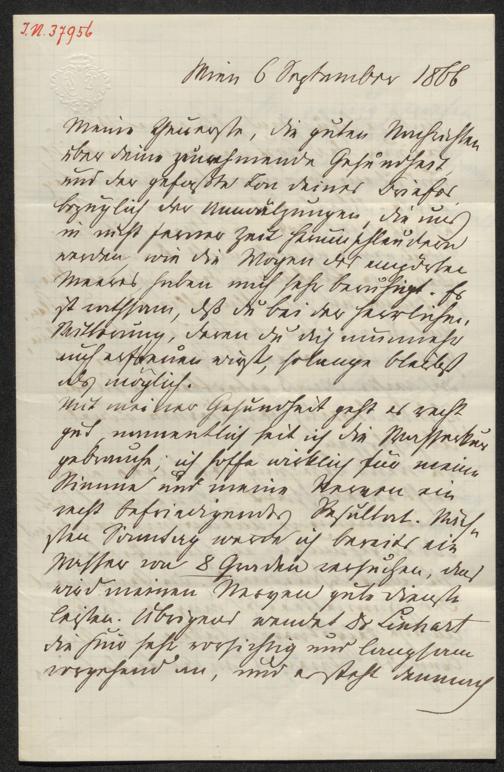 I.N. 37956
Wien 6 September 1866
Meine Theuerste, die guten Nachrichten
über deine zunehmende Gesundheit,
und der gefaßte Ton deines Briefes
bezüglich der Umwälzungen, die uns
in nicht ferner Zeit herumschleudern
werden wie die Wogen des empörten
Meeres haben mich sehr beruhigt. Es
ist rathsam, daß du bei der herrlichen
Witterung, deren du dich nunmehr
auch erfreuen wirst, solange bleibst
als möglich.
Mit meiner Gesundheit geht es recht
gut, namentlich seit ich die Wasserkur
gebrauche; ich hoffe wirklich für meine
Stimme und meine Nerven ein
recht befriedigendes Resultat. Näch-
sten Sonntag werde ich bereits ein
Wasser von 8 Graden versuchen, das
wird meinen Nerven gute Dienste
leisten. Übrigens wendet Dr Linhart
die Kur sehr vorsichtig und langsam
vorgehend an, und ersteht demnach